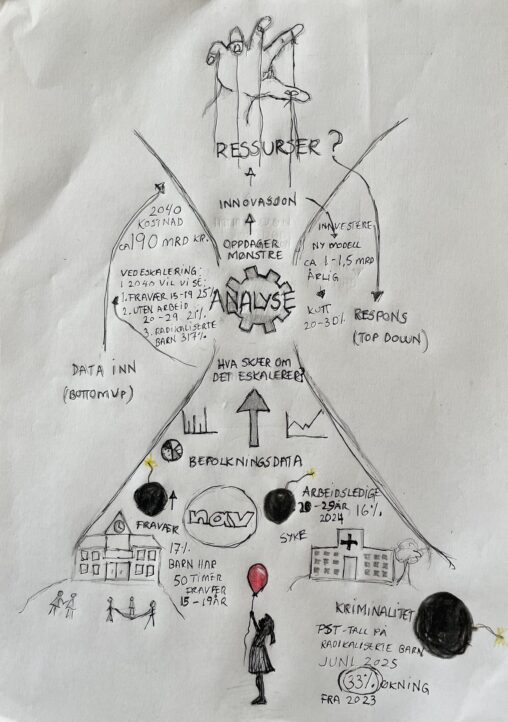 RESSURSER?
INNOVASJON
OPPDAGER
MØNSTRE
ANALYSE
2040
KOSTNAD
ca 190 MRD KR.
VED ESKALERING:
I 2040 VIL VI SE:
1. FRAVÆR 15-19 25%
2. UTEN ARBEID
20-29 21%
3. RADIKALISERTE
BARN 317%
DATA INN
(BOTTOM UP)
INNVESTERE
NY MODELL
CA 1-1,5 MRD
ÅRLIG
KUTT
20-30%
RESPONS
(TOP DOWN)
HVA SKJER OM
DET ESKALERER?
BEFOLKNINGSDATA
nav
FRAVÆR
17%
BARN HAR
50 TIMER
FRAVÆR
15-19 ÅR
ARBEIDSLEDIGE
20-29 ÅR 16%
2024
SYKE
KRIMINALITET
PST-TALL PÅ
RADIKALISERTE BARN
JUNI 2025
33% ØKNING
FRA 2023